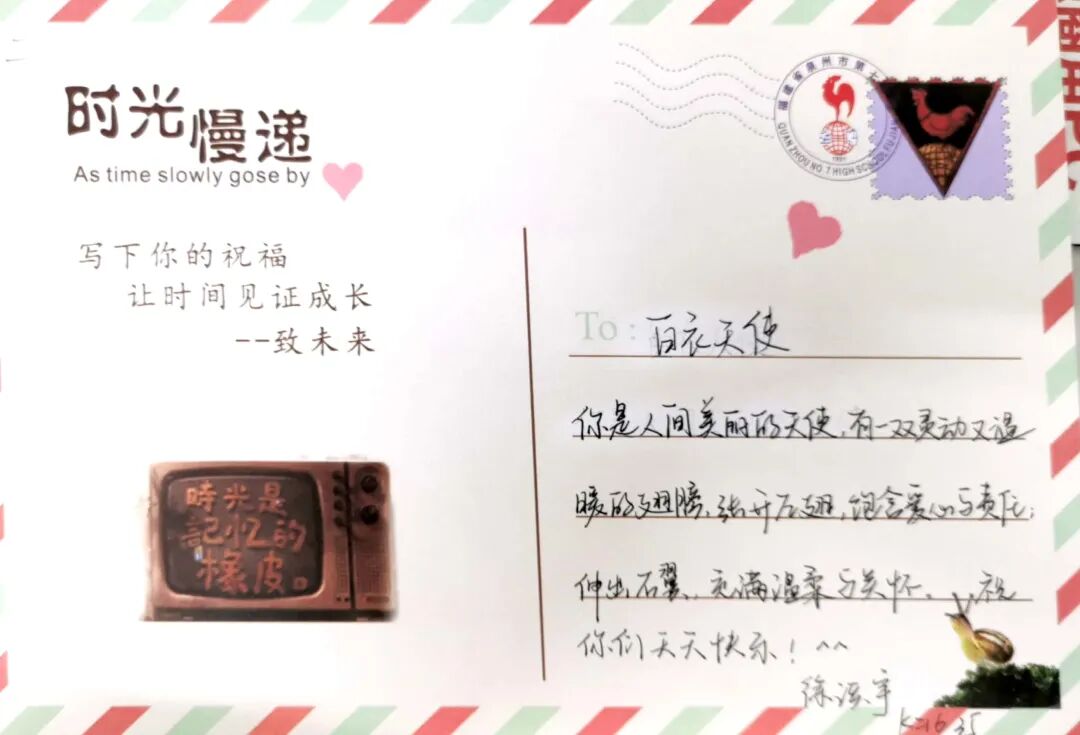 时光慢递
As time slowly gose by
写下你的祝福
让时间见证成长
--致未来
時光是
記忆的
橡皮。
福建省泉州市第七
QUANZHOU NO.7 HIGH SCHOOL FUJIAN
To: 白衣天使
你是人间美丽的天使,有一双灵动又温
暖的翅膀,张开左翅,饱含爱心与责任;
伸出右翼,充满温柔与关怀、,祝
你们天天快乐!^^
徐